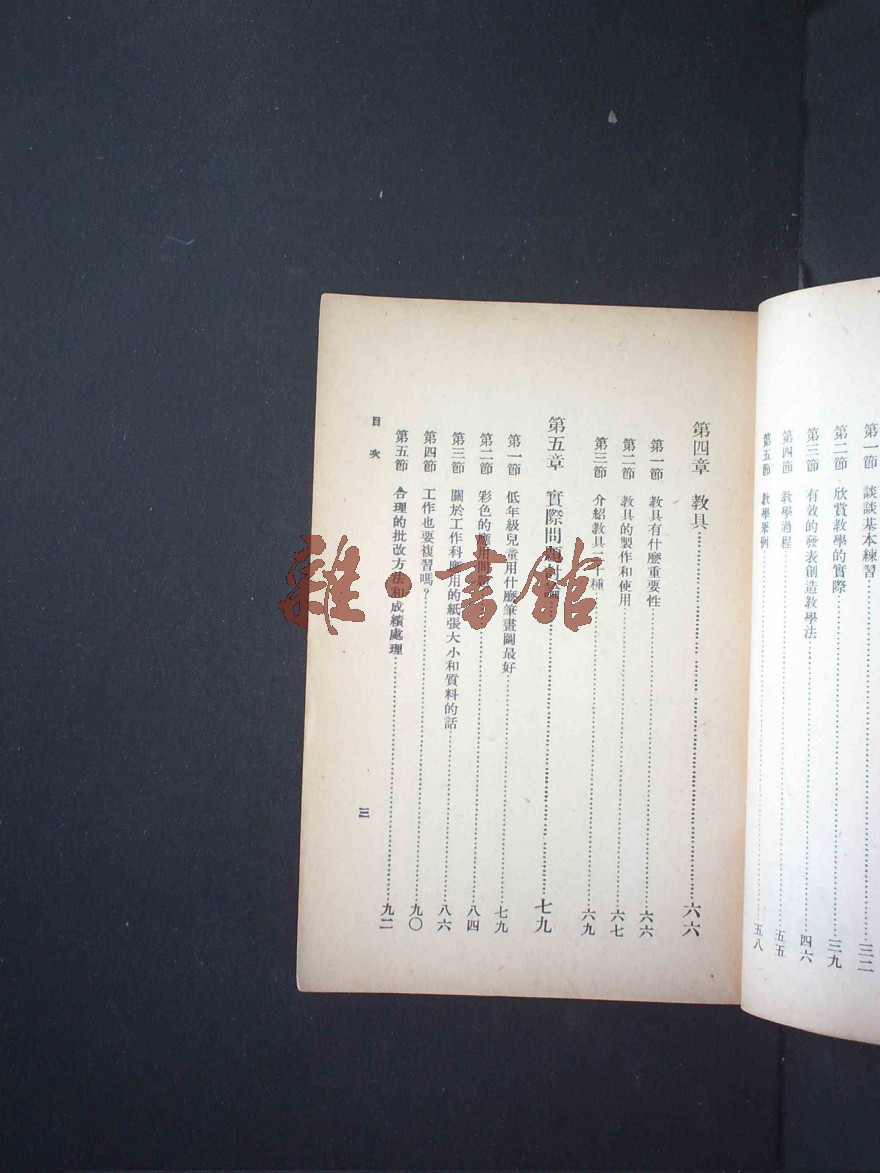 第一節 談談基本練習 三二
第二節 欣賞教學的實際 三九
第三節 有效的發表創造教學法 四六
第四節 教學過程 五五
第五節 教學舉例 五八
第四章 教具 六六
第一節 教具有什麼重要性 六六
第二節 教具的製作和使用 六七
第三節 介紹教具二十種 六九
第五章 實際問題討論 七九
第一節 低年級兒童用什麼筆畫圖最好 七九
第二節 彩色的應用問題 八四
第三節 關於工作科應用的紙張大小和質料的話 八六
第四節 工作也要複習嗎？ 九〇
第五節 合理的批改方法和成績處理 九二
目次
三
雜·書館